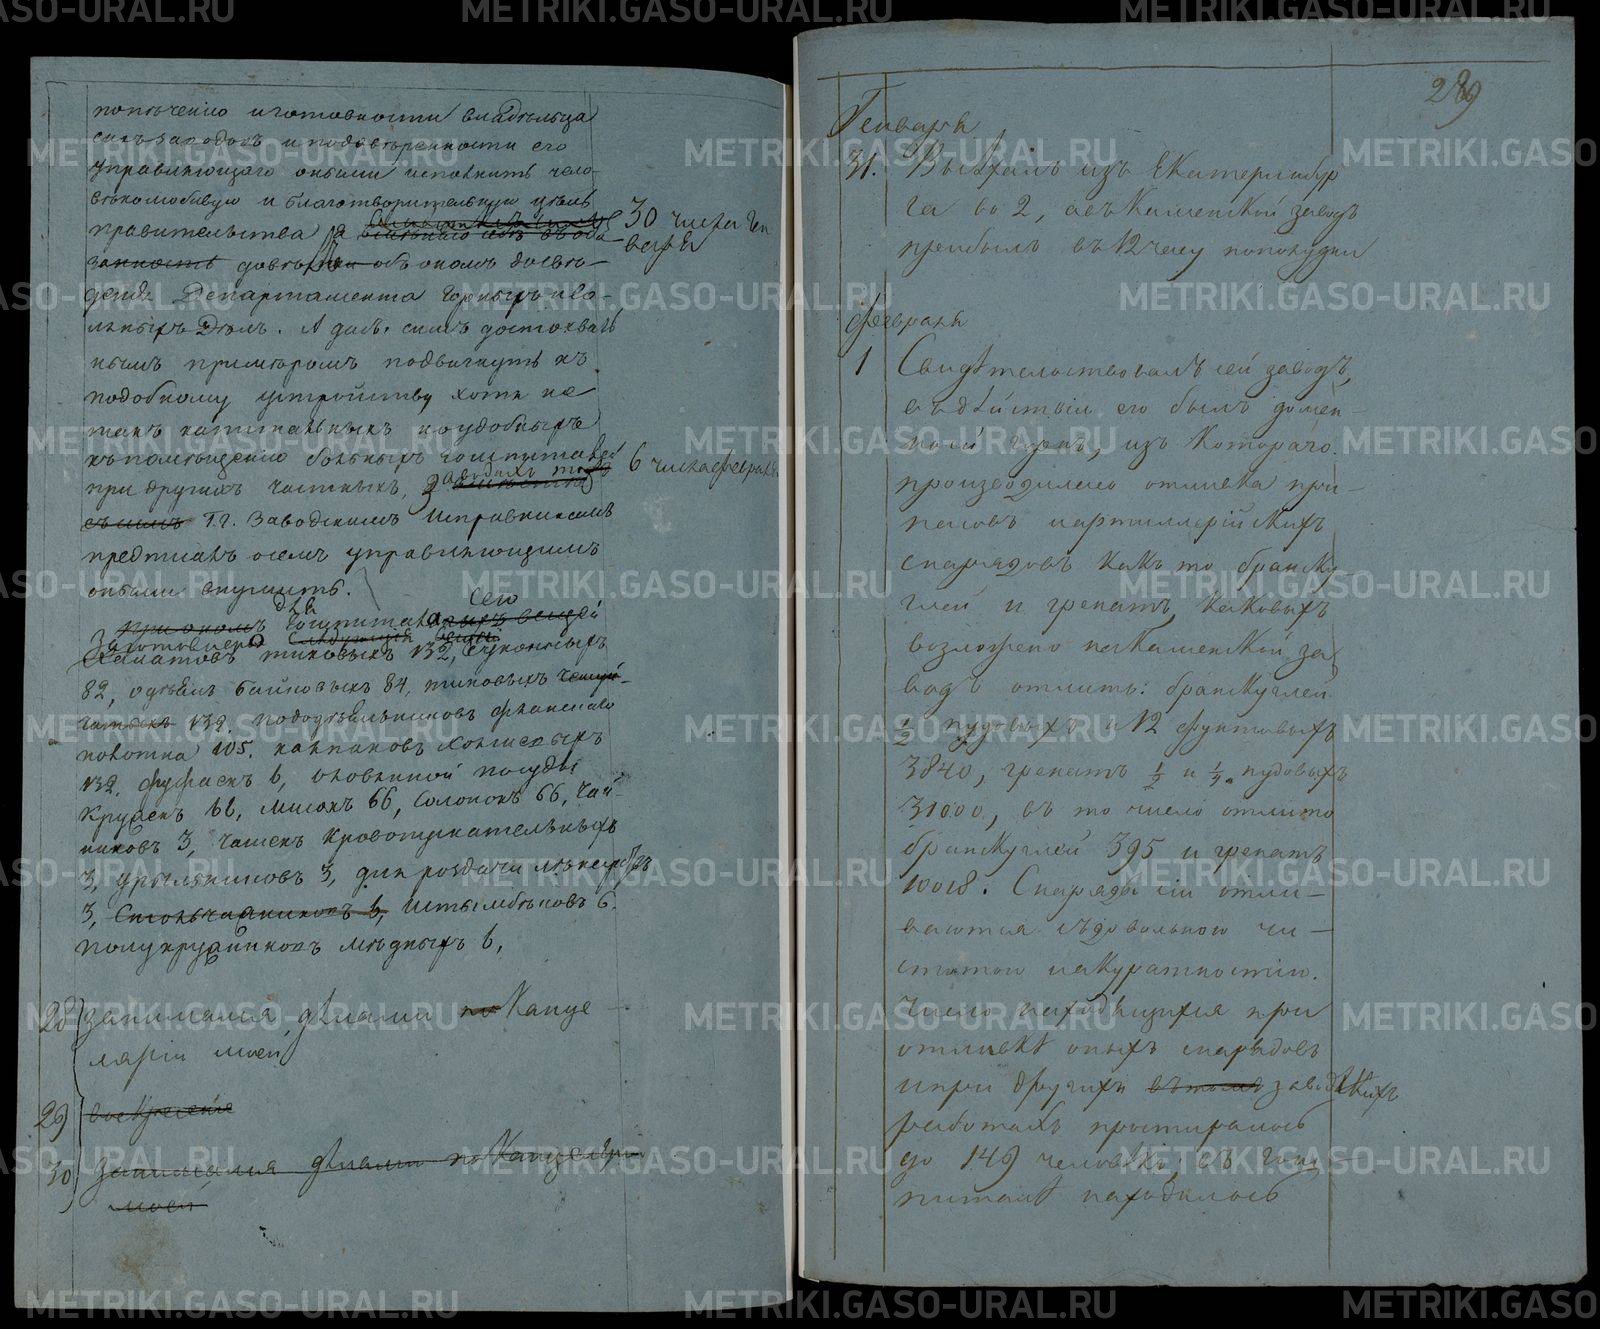 попеченію и готовности владѣльца
сихъ заводовъ и подовѣренности его
управляющаго оными исполнить чело-
вѣколюбивую и благотворительную цѣль
правительства я
30 числа Ген
варя
занность довелъ объ ономъ досвѣ-
денія Департамента Горныхъ исо-
льныхъ Дѣлъ. А дабы симъ достохваль
нымъ примѣромъ подвигнуть къ
подобному устройству хотя не
такъ капитальныхъ но удобныхъ
къ помѣщенію больныхъ гошпиталей
при другихъ частныхъ заводахъ то
6 числа февраля
съ симъ Г.г. Заводскимъ Исправникамъ
предписалъ осемъ управляющимъ
онымъ внушить.
Для сего
при ономъ гошпиталѣ вещей
Заготовлено следующія вещи
Халатовъ тиковыхъ 132, суконныхъ
82, одѣялъ байковыхъ 84, тиковыхъ
132. пододѣяльниковъ фланскаго
полотна 105. калпаковъ холщевыхъ
132. фуфаекъ 6, оловянной посуды
Кружекъ 66, мисокъ 66, солонокъ 66, чай-
никовъ 3, чашекъ кровопускательныхъ
3, урыльниковъ 3, для роздачи лѣкарствъ
3, 6, 6.
полукружниковъ мѣдныхъ 6,
28 занимался дѣлами по Канце
ляріи моей
29 воскресенье
30 Занимался дѣлами по Канцеляріи
моей
289
Генваря
31. Выѣхалъ изъ Екатеринбур
га во 2, а въ Каменской заводъ
прибылъ въ 12 часу пополудни
Февраля
1 Свидѣтельствовалъ сей заводъ,
въ дѣйствіи его былъ домен-
ной горнъ, изъ котораго
производилась отливка при-
пасовъ и артиллерійскихъ
снарядовъ какъ то бранску-
глей и гренатъ, каковыхъ
возложено на Каменской за
водъ отлить: бранскуглей
1/2 пудовыхъ и 12 фунтовыхъ
3840, гренатъ 1/2 и 1/4 пудовыхъ
31000, въ то число отлито
бранскуглей 395 и гренатъ
10018. Снаряды сіи отли-
ваются съ довольною чи-
стотою и акуратностію.
Число находящихся при
отливкѣ оныхъ снарядовъ
и при другихъ въ томъ заводскихъ
работахъ простиралось
до 149 человѣкъ, въ гош-
питалѣ находилось
METRIKI.GASO-URAL.RU